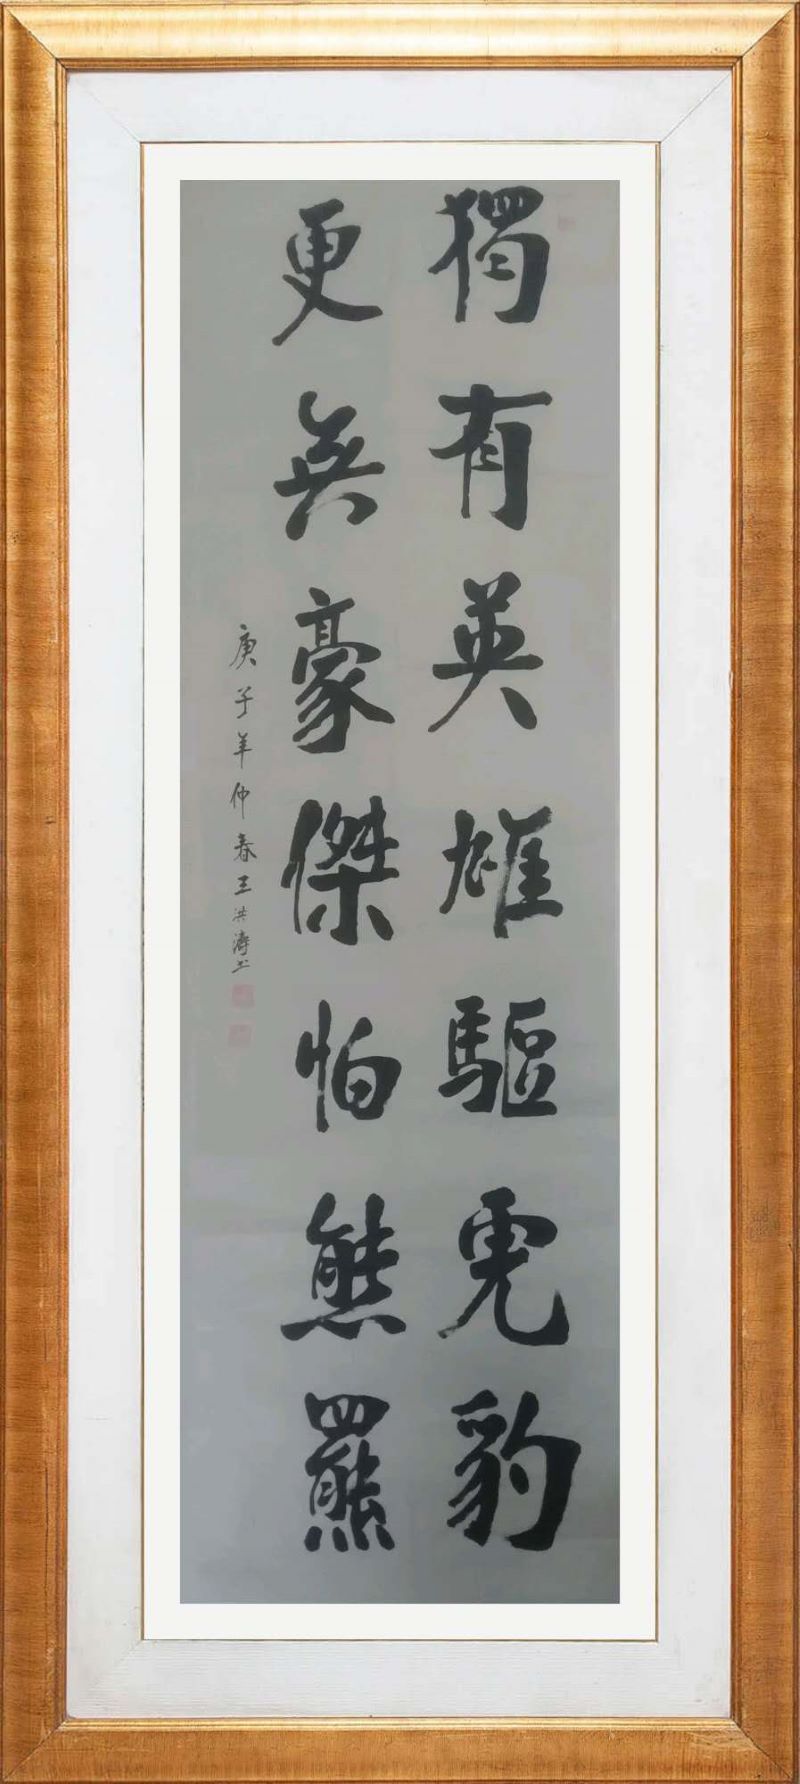 獨有英雄驅虎豹
更無豪傑怕熊羆
庚子年仲春王洪濤书